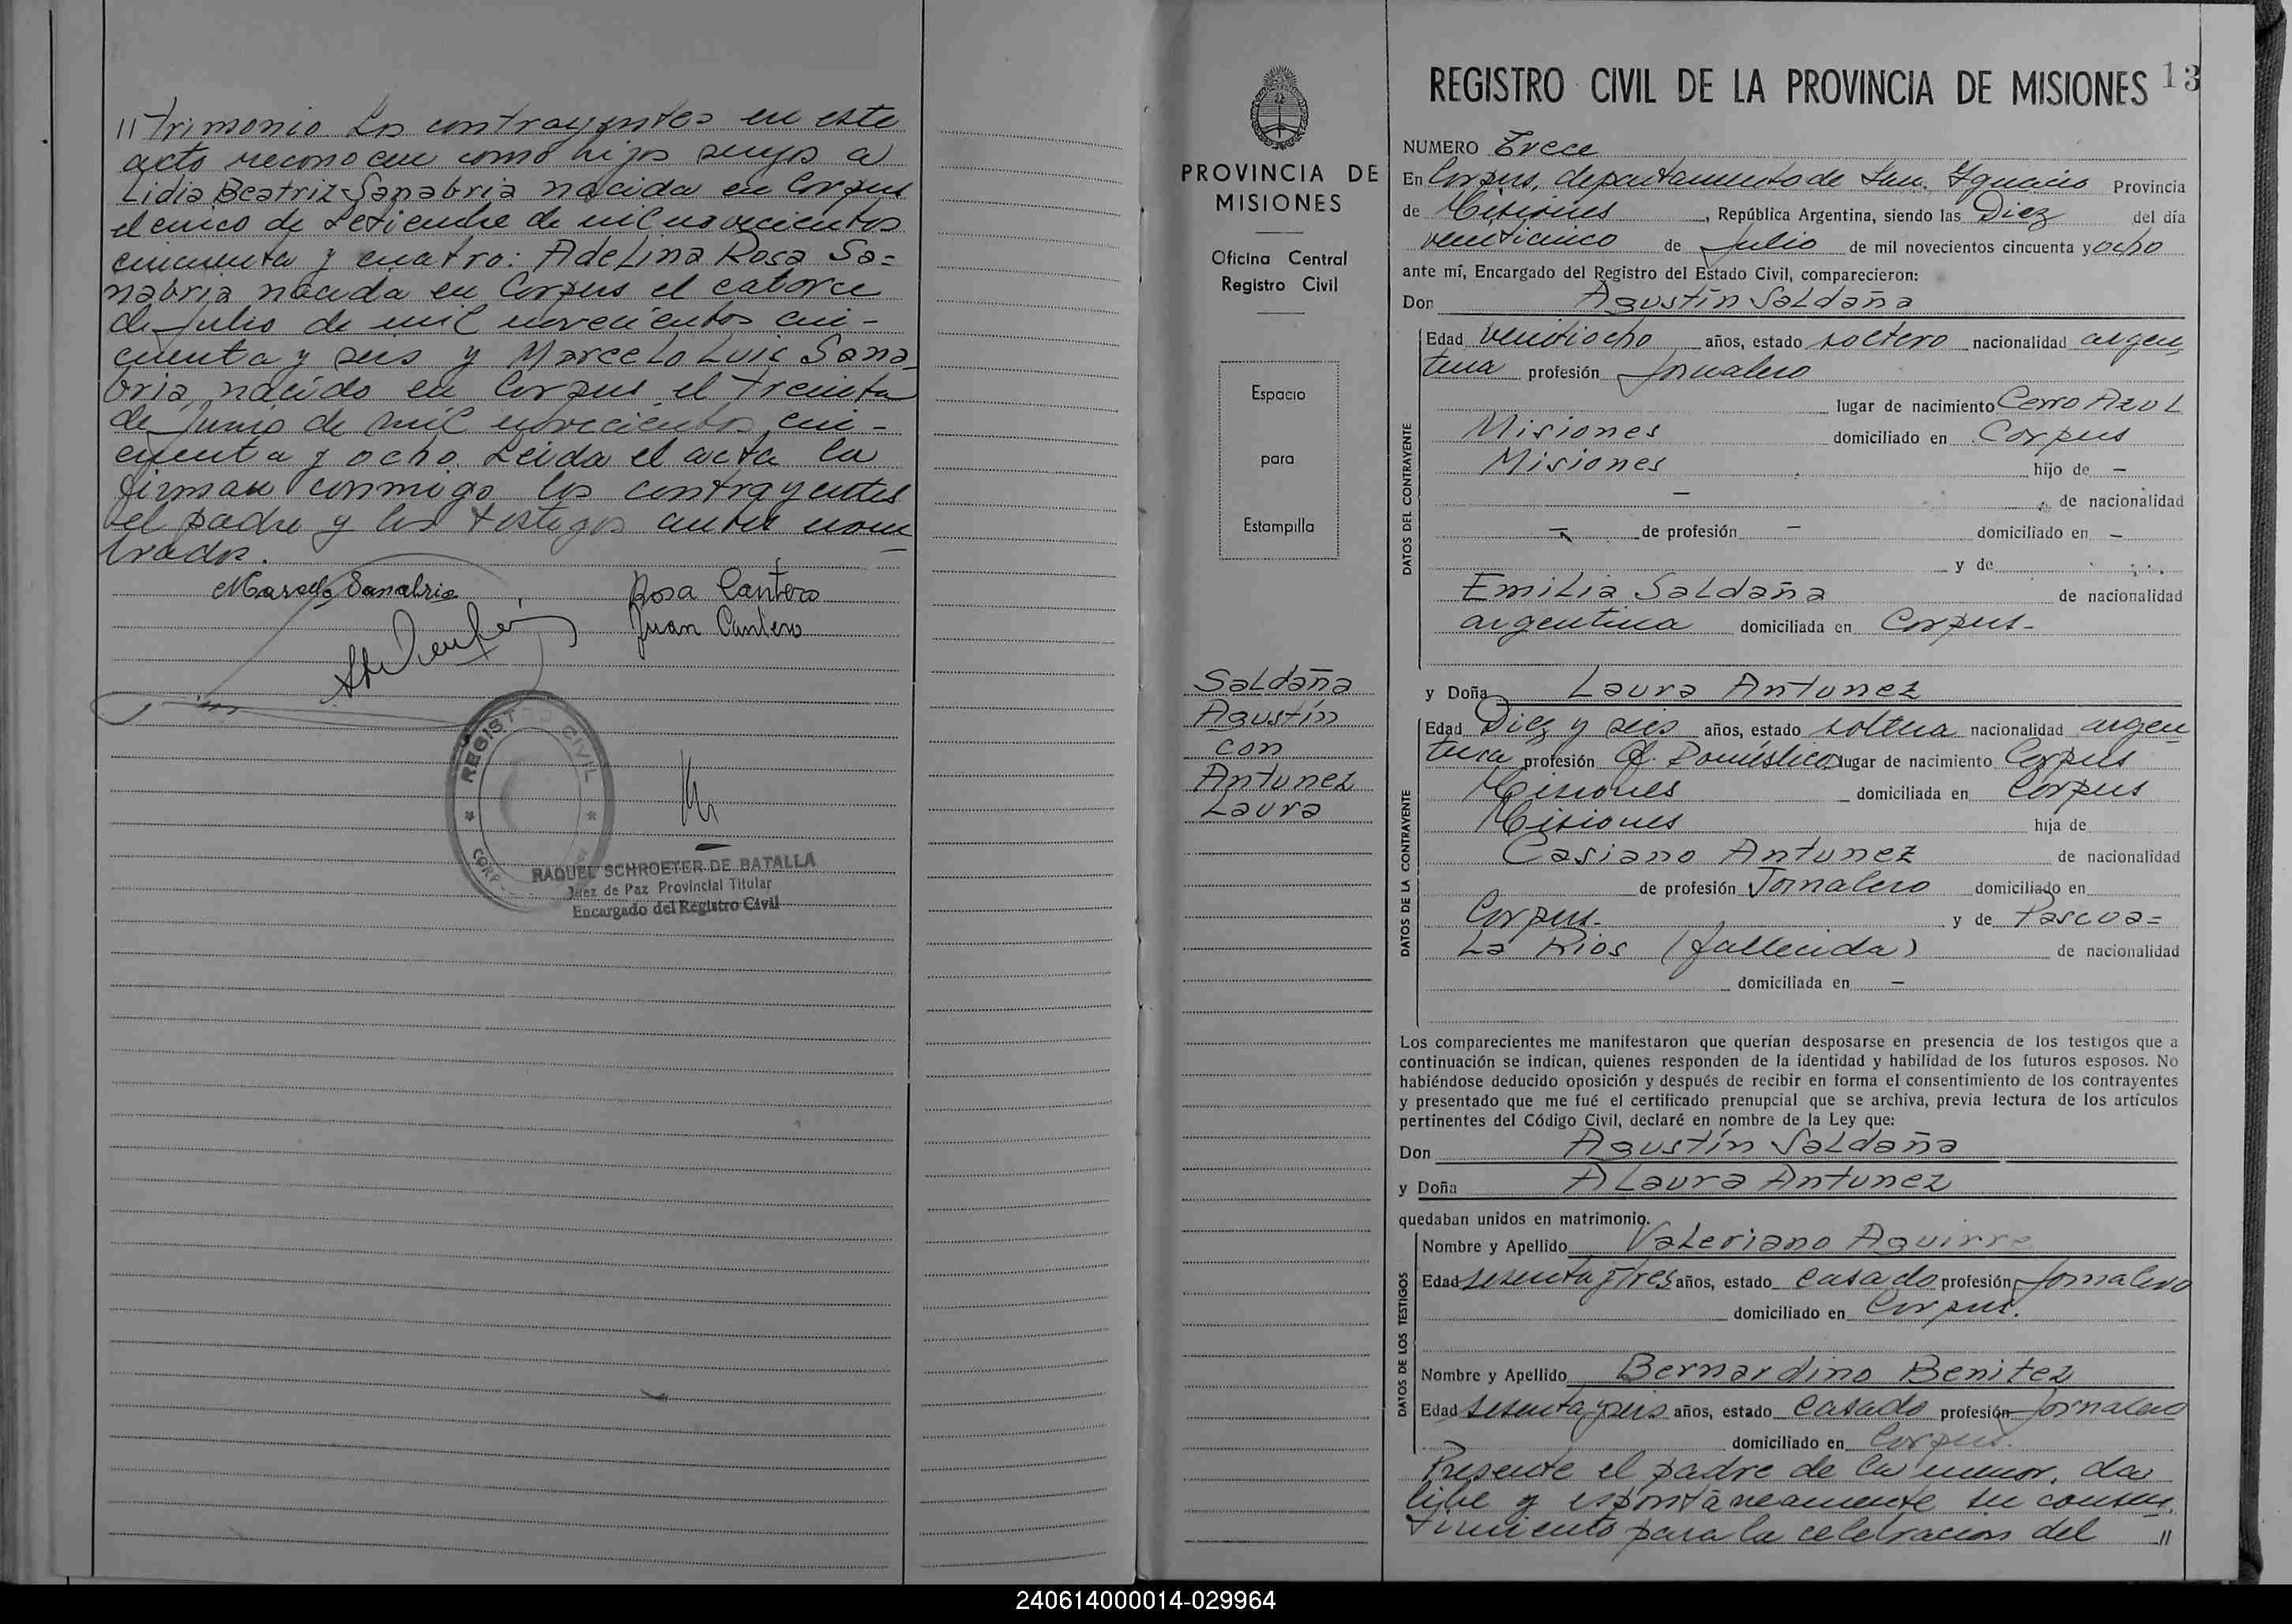 // trimonio. Los contrayentes en este
acto reconocen como hijos suyos a
Lidia Beatriz Sanabria nacida en Corpus
el cinco de Setiembre de mil novecientos
cincuenta y cuatro: Adelina Rosa Sa=
nabria nacida en Corpus el catorce
de Julio de mil novecientos cin-
cuenta y seis y Marcelo Luis Sana
bria, nacido en Corpus el treinta
de Junio de mil novecientos cin-
cuenta y ocho. Leida el acta la
firman conmigo los contrayentes
el padre y los testigos antes nom
brados.
Marcelo Sanabria
Rosa Cantero
Juan Cantero
REGISTRO CIVIL
CORP
RAQUEL SCHROETER DE BATALLA
Juez de Paz Provincial Titular
Encargado del Registro Civil
PROVINCIA DE
MISIONES
Oficina Central
Registro Civil
Espacio
para
Estampilla
Saldaña
Agustín
con
Antunez
Laura
REGISTRO CIVIL DE LA PROVINCIA DE MISIONES 13
NUMERO Trece
En Corpus, departamento de San Ignacio Provincia
de Misiones, República Argentina, siendo las Diez del día
veinticinco de Julio de mil novecientos cincuenta y ocho
ante mí, Encargado del Registro del Estado Civil, comparecieron:
Don Agustín Saldaña
DATOS DEL CONTRAYENTE
Edad veintiocho años, estado soltero nacionalidad argen
tina profesión Jornalero
lugar de nacimiento Cerro Azul
Misiones domiciliado en Corpus
Misiones hijo de —
— de nacionalidad
— de profesión — domiciliado en —
y de
Emilia Saldaña de nacionalidad
argentina domiciliada en Corpus-
y Doña Laura Antunez
DATOS DE LA CONTRAYENTE
Edad Diez y seis años, estado soltera nacionalidad argen
tina profesión Q. Domésticos lugar de nacimiento Corpus
Misiones domiciliada en Corpus
Misiones hija de
Casiano Antunez de nacionalidad
de profesión Jornalero domiciliado en
Corpus- y de Pascua=
la Rios (fallecida) de nacionalidad
domiciliada en —
Los comparecientes me manifestaron que querían desposarse en presencia de los testigos que a
continuación se indican, quienes responden de la identidad y habilidad de los futuros esposos. No
habiéndose deducido oposición y después de recibir en forma el consentimiento de los contrayentes
y presentado que me fué el certificado prenupcial que se archiva, previa lectura de los artículos
pertinentes del Código Civil, declaré en nombre de la Ley que:
Don Agustín Saldaña
y Doña A Laura Antunez
quedaban unidos en matrimonio.
DATOS DE LOS TESTIGOS
Nombre y Apellido Valeriano Aguirre
Edad sesenta y tres años, estado casado profesión Jornalero
domiciliado en Corpus.
Nombre y Apellido Bernardino Benitez
Edad sesenta y seis años, estado casado profesión Jornalero
domiciliado en Corpus.
Presente el padre de la menor, da
libre y espontáneamente su consen
timiento para la celebracion del //
240614000014-029964